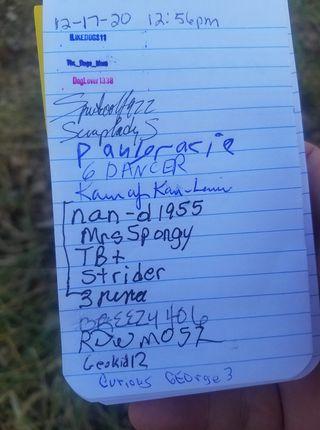 12-17-20 12:56pm
ILIKEDOGS11
The_Dogs_Mom
DogLover1338
ScrapladyS
Panteracie
6 DANCER
Kam of Kam-Lewi
nan-d1955
MrsSpongy
TB+
Strider
3 puma
BREEZY406
RDWMOSZ
Geokid12
Curious GEOrge 3